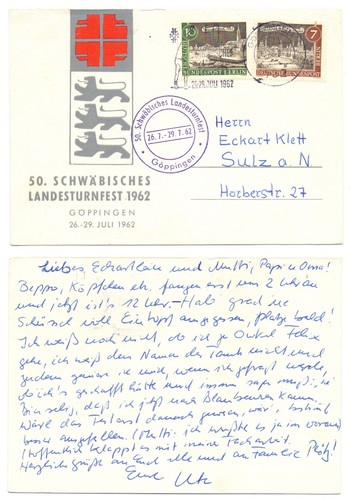 10
DEUTSCHE BUNDESPOST BERLIN
7
DEUTSCHE BUNDESPOST BERLIN
26.-29. JULI 1962
50. Schwäbisches Landesturnfest
26.7.-29.7.62
Göppingen
Herrn
Eckart Klett
Sulz a N
Horberstr. 27
50. SCHWÄBISCHES
LANDESTURNFEST 1962
GÖPPINGEN
26.-29. JULI 1962
Liebes und Mutti, Papi u Oma!
Beppo, Köpfchen etc. fangen erst um 2 Uhr an
und jetzt ist's 12 Uhr. Hab grad ne
Schüssel voll Eintopf ausgegessen, platze bald!
Ich weiß noch nicht, ob ich zu Onkel Felix
gehe, ich weiß den Namen der Tante nicht und
zudem geniere ich mich, wenn sie fragt
ob ich's geschafft hätte und immer sagen muß: nei
Bin selig, daß ich jetzt nach Blaubeuren kann.
Wäre das Fest erst danach gewesen, wär's bestimmt
besser ausgefallen. (Mutti, ich wußte es ja im voraus)
Hoffentlich klappt es mit meiner
Herzliche Grüße an Euch alle und an Familie
Eure Ute